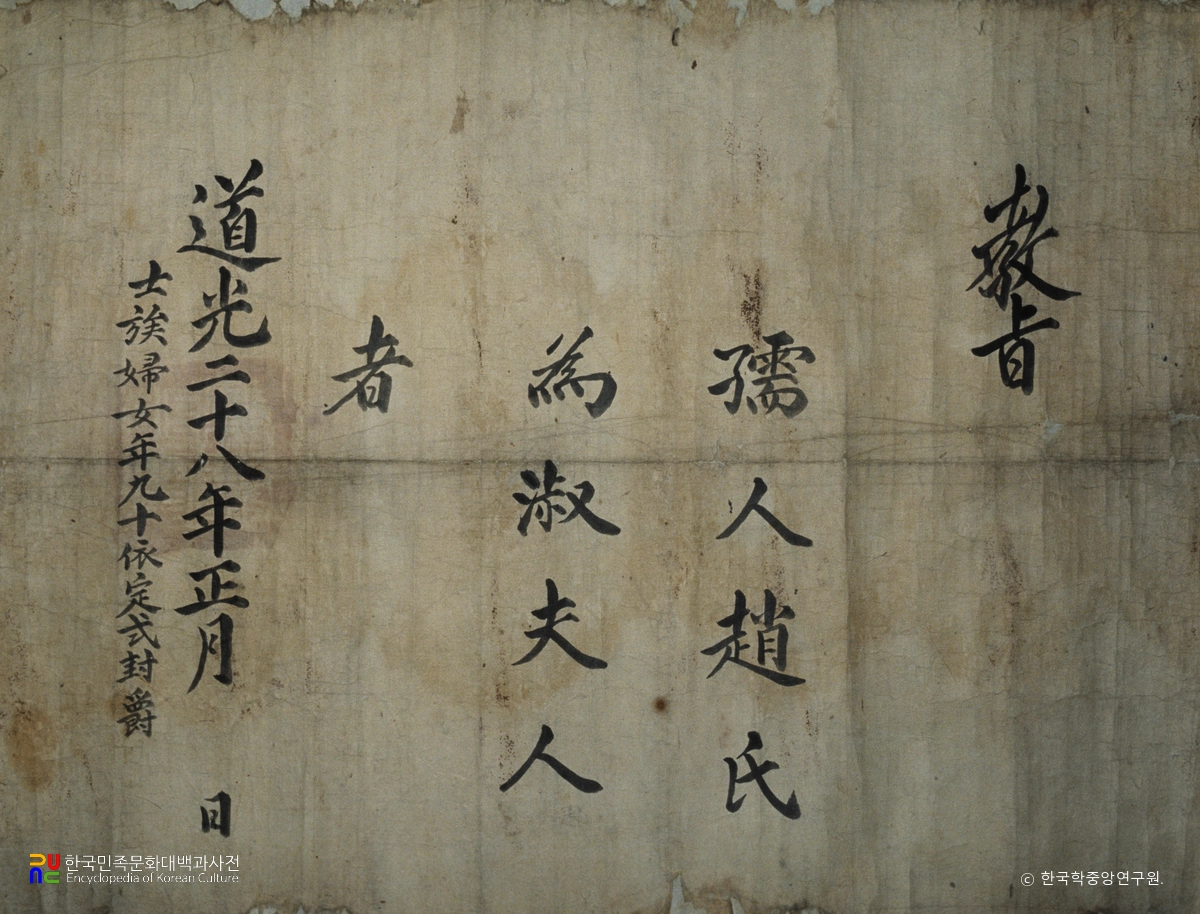 敎旨
孺人趙氏
為淑夫人
者
道光二十八年正月 日
士族婦女年九十依定式封爵
한국민족문화대백과사전
Encyclopedia of Korean Culture
ⓒ 한국학중앙연구원.